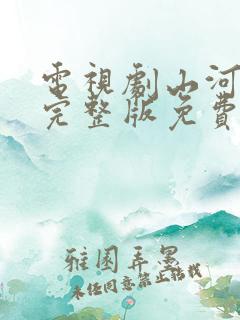 電視劇山河
完整版免費
雅圖弄墨
未經同意禁止轉載